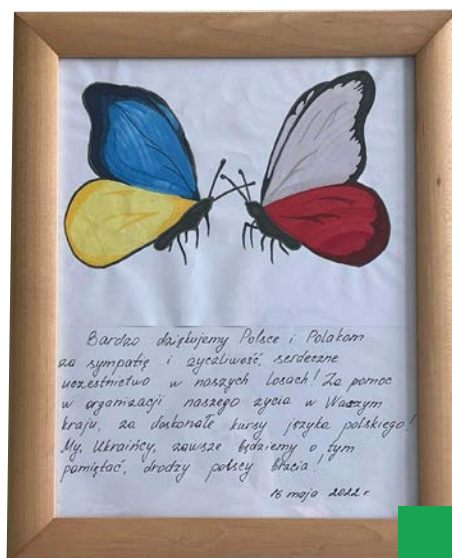 Bardzo dziękujemy Polsce i Polakom
za sympatię i życzliwość, serdeczne
uczestnictwo w naszych losach! Za pomoc
w organizacji naszego życia w Waszym
kraju, za doskonałe kursy języka polskiego!
My, Ukraińcy, zawsze będziemy o tym
pamiętać, drodzy polscy bracia!
16 maja 2022 r.